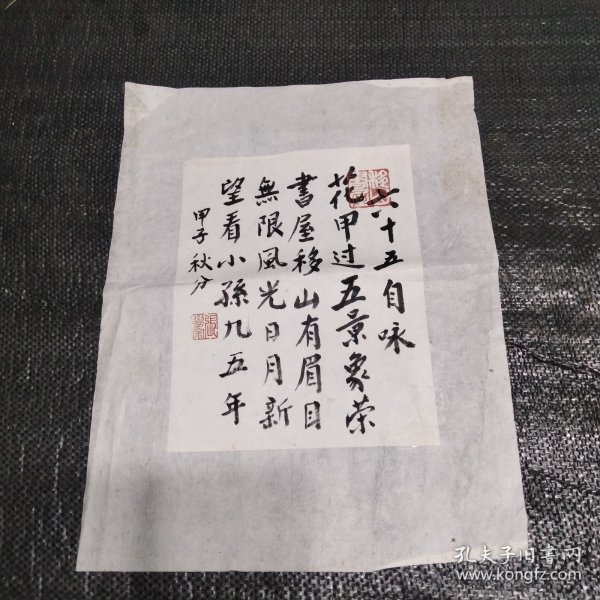 六十五自咏
花甲过五景象荣
書屋移山有眉目
無限風光日月新
望看小孫九五年
甲子秋分
孔夫子旧書网
www.kongfz.com